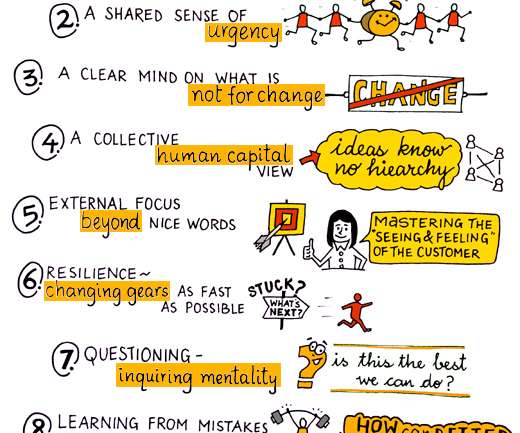 2. A SHARED SENSE OF
urgency
3. A CLEAR MIND ON WHAT IS
not for change
CHANGE
4. A COLLECTIVE
human capital
VIEW
ideas know
no hiearchy
5. EXTERNAL FOCUS
beyond NICE WORDS
MASTERING THE
"SEEING & FEELING"
OF THE CUSTOMER
6. RESILIENCE~
changing gears AS FAST
AS POSSIBLE
STUCK?
WHAT'S
NEXT?
7. QUESTIONING -
inquiring mentality
? is this the best
we can do?
8 LEARNING FROM MISTAKES
HOW